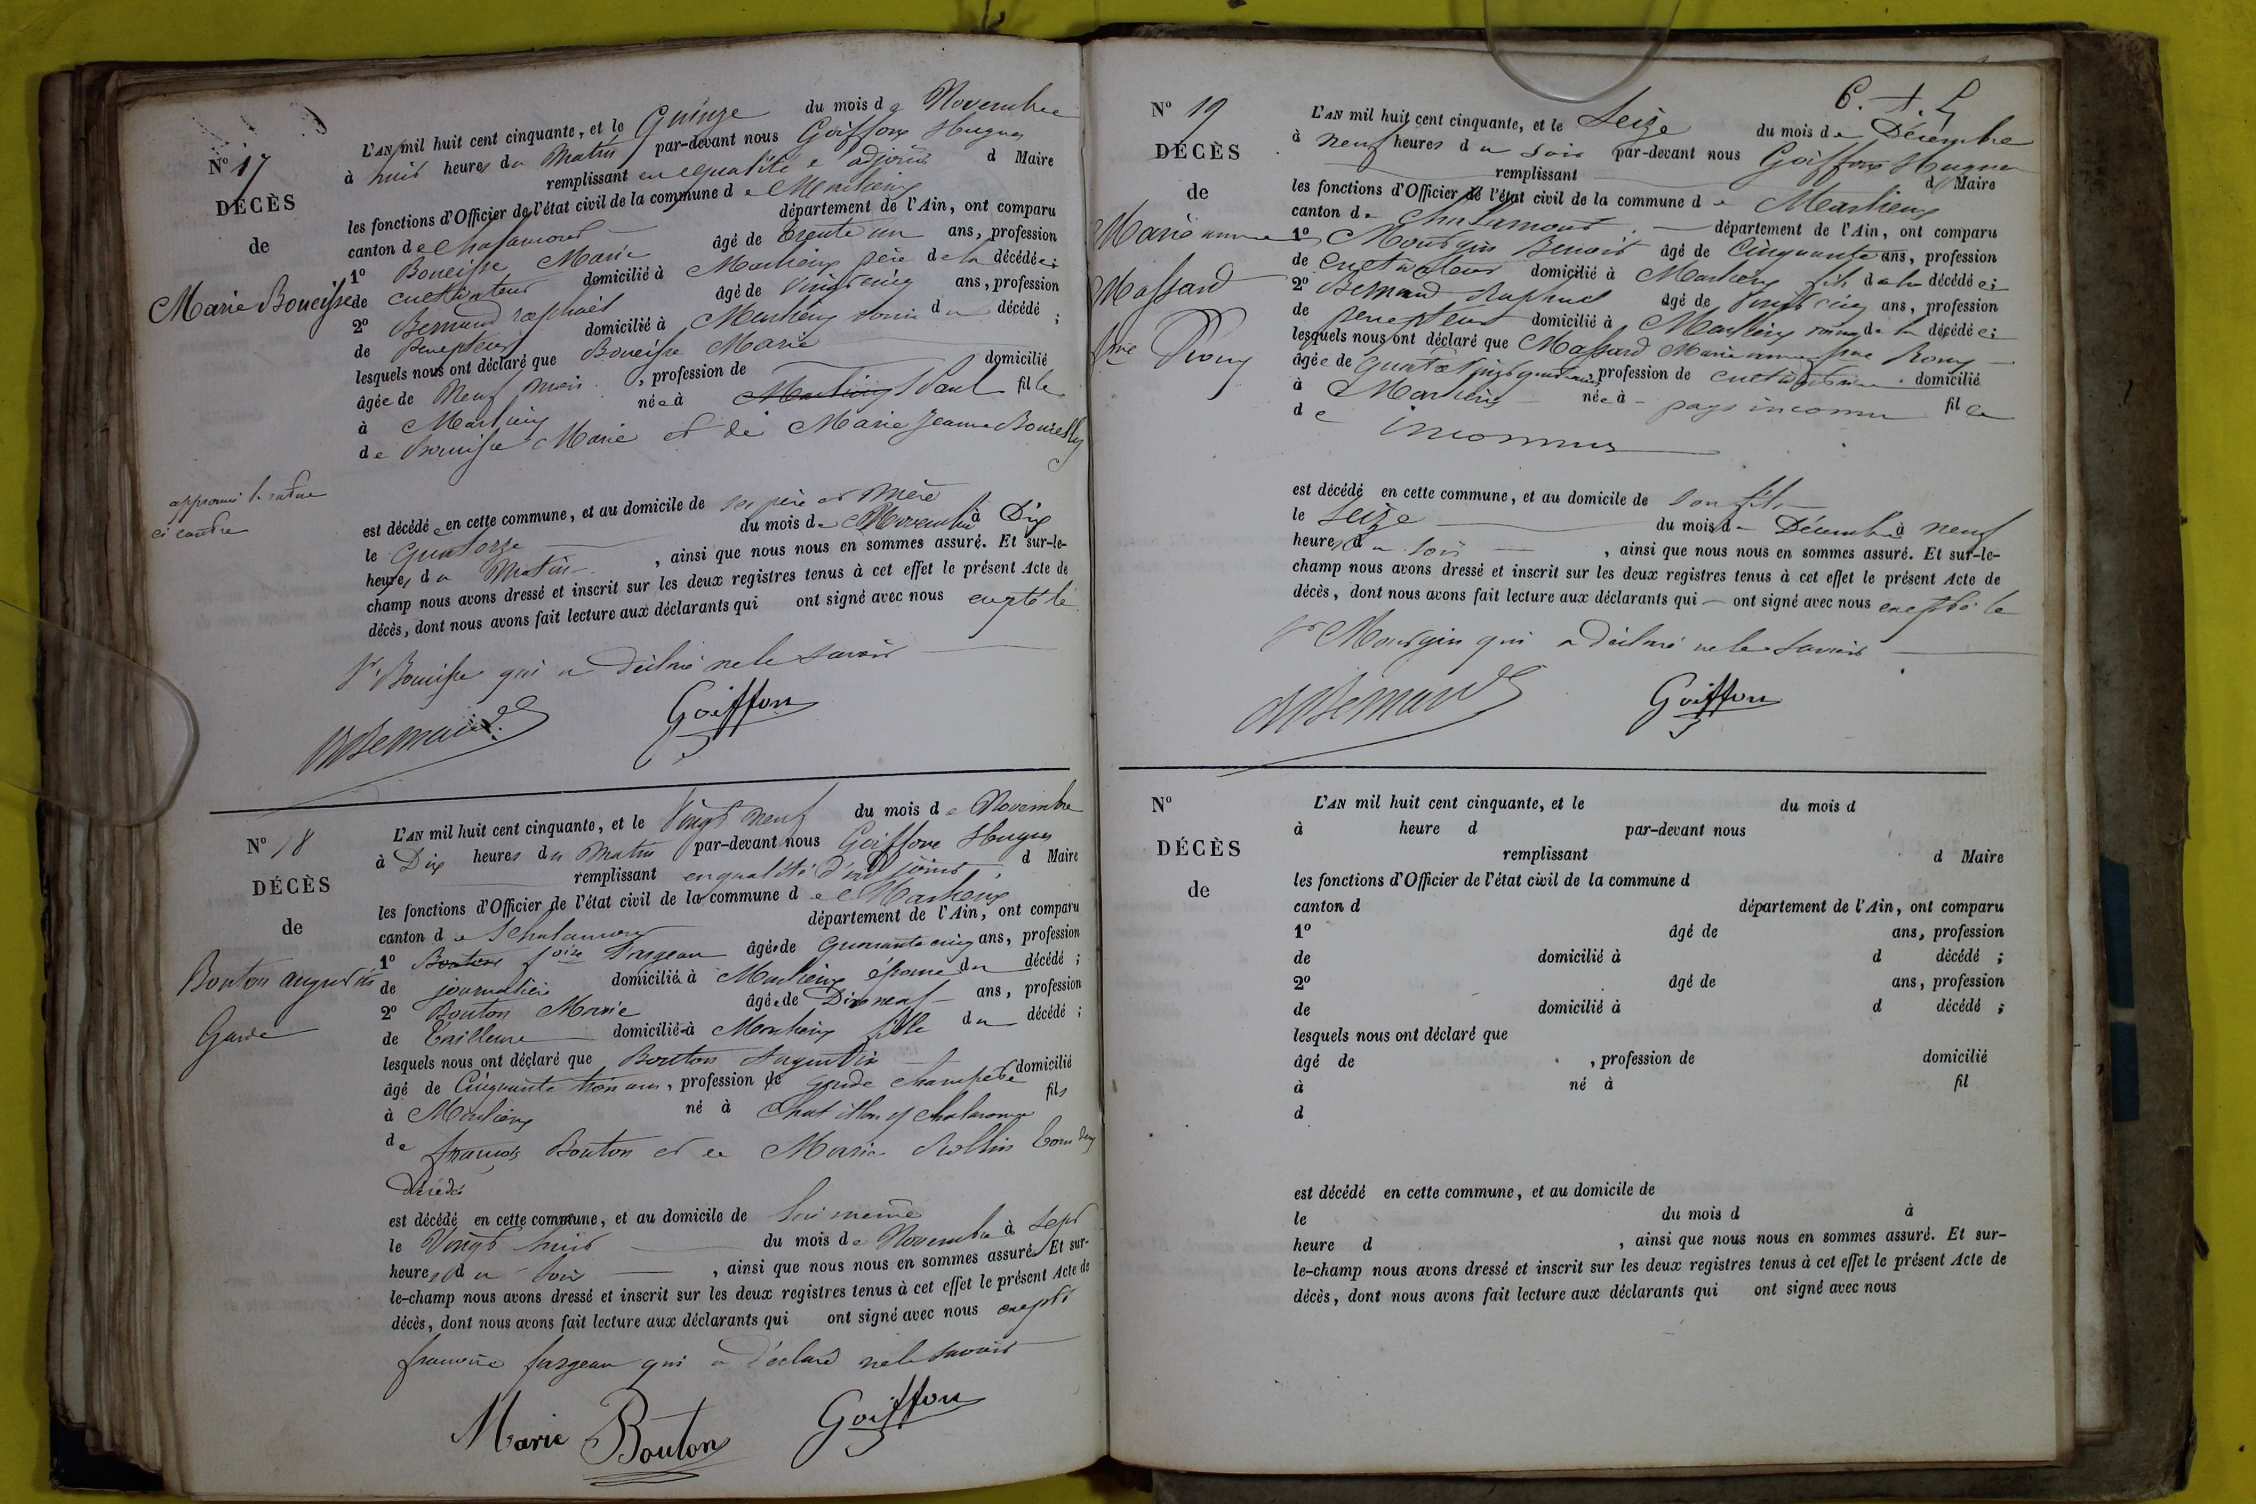 N° 17
DÉCÈS
de
Marie Boueisse
approuvé la rature
ci contre
L'AN mil huit cent cinquante, et le Quinze du mois de Novembre
à huit heures du Matin par-devant nous Goiffon Hugues
remplissant en qualité d'adjoint d Maire
les fonctions d'Officier de l'état civil de la commune de Marlieux
canton de Chalamont département de l'Ain, ont comparu
1° Boueisse Marie âgé de trente un ans, profession
de cultivateur domicilié à Marlieux père de la décédée;
2° Bernard raphaël âgé de vingt cinq ans, profession
de percepteur domicilié à Marlieux voisin du décédé;
lesquels nous ont déclaré que Boueisse Marie
âgée de Neuf mois, profession de domicilié
à Marlieux née à Marlieux St Paul fille
de Boueisse Marie et de Marie Jeanne
est décédée en cette commune, et au domicile de ses père et mère
le Quatorze du mois de Novembre à Dix
heures du Matin, ainsi que nous nous en sommes assuré. Et sur-le-
champ nous avons dressé et inscrit sur les deux registres tenus à cet effet le présent Acte de
décès, dont nous avons fait lecture aux déclarants qui ont signé avec nous excepté le
Sr Boueisse qui a déclaré ne le savoir
Bernard Goiffon
N° 18
DÉCÈS
de
Bouton augustin
Garde
L'AN mil huit cent cinquante, et le Vingt neuf du mois de Novembre
à Dix heures du Matin par-devant nous Goiffon Hugues
remplissant en qualité d'adjoint d Maire
les fonctions d'Officier de l'état civil de la commune de Marlieux
canton de Chalamont département de l'Ain, ont comparu
1° Bouton foise Fargeau âgée de Quarante cinq ans, profession
de journalière domiciliée à Marlieux épouse du décédé;
2° Bouton Marie âgée de Dix neuf ans, profession
de tailleuse domiciliée à Marlieux fille du décédé;
lesquels nous ont déclaré que Bouton Augustin
âgé de Cinquante trois ans, profession de garde champêtre domicilié
à Marlieux né à Chatillon sr Chalaronne fils
de françois Bouton et de Marie Rollin tous deux
décédés
est décédé en cette commune, et au domicile de lui même
le Vingt huit du mois de Novembre à Sept
heures du soir, ainsi que nous nous en sommes assuré. Et sur-
le-champ nous avons dressé et inscrit sur les deux registres tenus à cet effet le présent Acte de
décès, dont nous avons fait lecture aux déclarants qui ont signé avec nous excepté
françoise fargeau qui a déclaré ne le savoir
Marie Bouton Goiffon
N° 19
DÉCÈS
de
Marie anne
Massard
fme Prony
L'AN mil huit cent cinquante, et le Seize du mois de Décembre
à neuf heures du soir par-devant nous Goiffon Hugues
remplissant d Maire
les fonctions d'Officier de l'état civil de la commune de Marlieux
canton de Chalamont département de l'Ain, ont comparu
1° Mourgin Benoit âgé de Cinquante ans, profession
de Cultivateur domicilié à Marlieux fils de la décédée;
2° Bernard Raphael âgé de vingt cinq ans, profession
de percepteur domicilié à Marlieux voisin de la décédée;
lesquels nous ont déclaré que Massard Marie anne fme Prony
âgée de quatre vingt quatre ans, profession de cultivatrice domicilié
à Marlieux née à pays inconnu fille
de inconnus
est décédé en cette commune, et au domicile de son fils
le Seize du mois de Décembre à neuf
heures du soir, ainsi que nous nous en sommes assuré. Et sur-le-
champ nous avons dressé et inscrit sur les deux registres tenus à cet effet le présent Acte de
décès, dont nous avons fait lecture aux déclarants qui ont signé avec nous excepté le
Sr Mourgin qui a déclaré ne le savoir
Bernard Goiffon
N°
DÉCÈS
de
L'AN mil huit cent cinquante, et le du mois d
à heure d par-devant nous
remplissant d Maire
les fonctions d'Officier de l'état civil de la commune d
canton d département de l'Ain, ont comparu
1° âgé de ans, profession
de domicilié à d décédé;
2° âgé de ans, profession
de domicilié à d décédé;
lesquels nous ont déclaré que
âgé de , profession de domicilié
à né à fil
d
est décédé en cette commune, et au domicile de
le du mois d à
heure d , ainsi que nous nous en sommes assuré. Et sur-
le-champ nous avons dressé et inscrit sur les deux registres tenus à cet effet le présent Acte de
décès, dont nous avons fait lecture aux déclarants qui ont signé avec nous